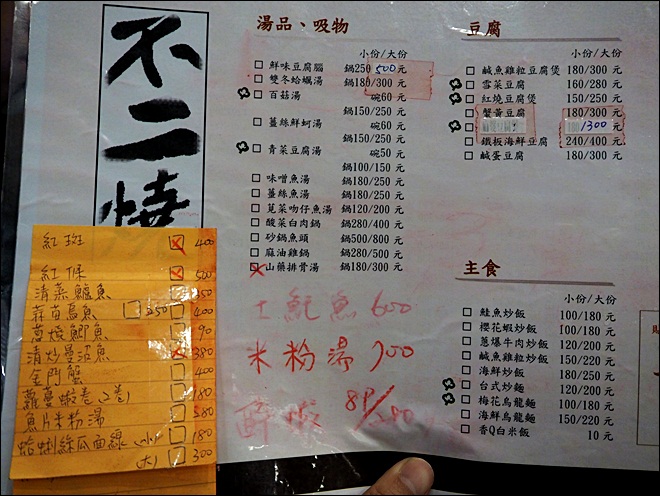 不二燒
湯品、吸物
小份/大份
鮮味豆腐腦 鍋250 500元
雙冬蛤蠣湯 鍋180/300元
百菇湯 碗60元
鍋150/250元
薑絲鮮蚵湯 碗60元
鍋150/250元
青菜豆腐湯 碗50元
鍋100/150元
味噌魚湯 鍋150/250元
薑絲魚湯 鍋150/250元
莧菜吻仔魚湯 鍋120/200元
酸菜白肉鍋 鍋280/400元
砂鍋魚頭 鍋500/800元
麻油雞鍋 鍋280/500元
山藥排骨湯 鍋180/300元
土魠魚 600
米粉湯
豆腐
小份/大份
鹹魚雞粒豆腐煲 180/300元
雪菜豆腐 160/280元
紅燒豆腐煲 150/250元
蟹黃豆腐 180/300元
300元
鐵板海鮮豆腐 240/400元
鹹蛋豆腐 180/300元
主食
小份/大份
鮭魚炒飯 100/180元
櫻花蝦炒飯 100/180元
蔥爆牛肉炒飯 120/200元
鹹魚雞粒炒飯 150/220元
海鮮炒飯 180/250元
台式炒麵 120/200元
梅花烏龍麵 100/180元
海鮮烏龍麵 150/220元
香Q白米飯 10元
紅斑 400
紅條 500
清蒸鱸魚 350
蒜苗烏魚 250 400
蔥燒鯽魚 90
清炒曼波魚 380
金門蟹 400
蘿蔓蝦卷(2卷) 180
魚片米粉湯 280
蛤蜊絲瓜麵線(小) 180
(大) 300